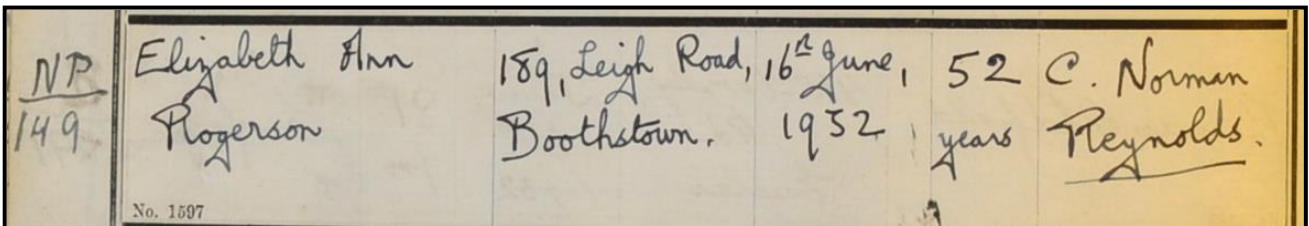 NP
149
Elizabeth Ann
Rogerson
No. 1597
189, Leigh Road,
Boothstown.
16th June,
1952
52
years
C. Norman
Reynolds.